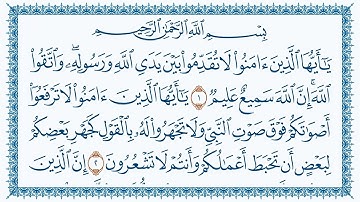 بِسْمِ ٱللَّهِ ٱلرَّحْمَٰنِ ٱلرَّحِيمِ
يَـٰٓأَيُّهَا ٱلَّذِينَ ءَامَنُوا۟ لَا تُقَدِّمُوا۟ بَيْنَ يَدَىِ ٱللَّهِ وَرَسُولِهِۦ ۖ وَٱتَّقُوا۟
ٱللَّهَ ۚ إِنَّ ٱللَّهَ سَمِيعٌ عَلِيمٌ ١ يَـٰٓأَيُّهَا ٱلَّذِينَ ءَامَنُوا۟ لَا تَرْفَعُوٓا۟
أَصْوَٰتَكُمْ فَوْقَ صَوْتِ ٱلنَّبِىِّ وَلَا تَجْهَرُوا۟ لَهُۥ بِٱلْقَوْلِ كَجَهْرِ بَعْضِكُمْ
لِبَعْضٍ أَن تَحْبَطَ أَعْمَـٰلُكُمْ وَأَنتُمْ لَا تَشْعُرُونَ ٢ إِنَّ ٱلَّذِينَ